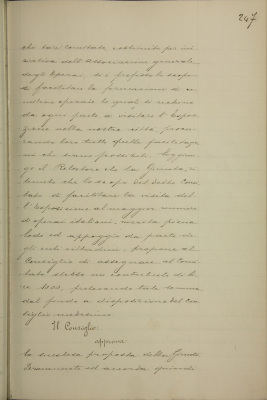 247
che tale Comitato, costituito per ini-
ziativa dell'Associazione generale
degli Operai, si è proposto lo scopo
di facilitare la formazione di co-
mitive operaie le quali si rechino
da ogni parte a visitare l'Espo-
sizione nella nostra città, procu-
rando loro tutte quelle facilitazio-
ni che siano possibili. Soggiun-
ge il Relatore che la Giunta, ri-
tenuto che lo scopo del detto Comi-
tato di facilitare la visita del-
l'Esposizione al maggior numero
di operai italiani, merita piena
lode ed appoggio da parte di
gli enti cittadini, propone al
Consiglio di assegnare al Comi-
tato stesso un contributo di li-
re 1000, prelevando tale somma
dal fondo a disposizione del Con-
siglio medesimo.
Il Consiglio
approva
la suddetta proposta della Giunta